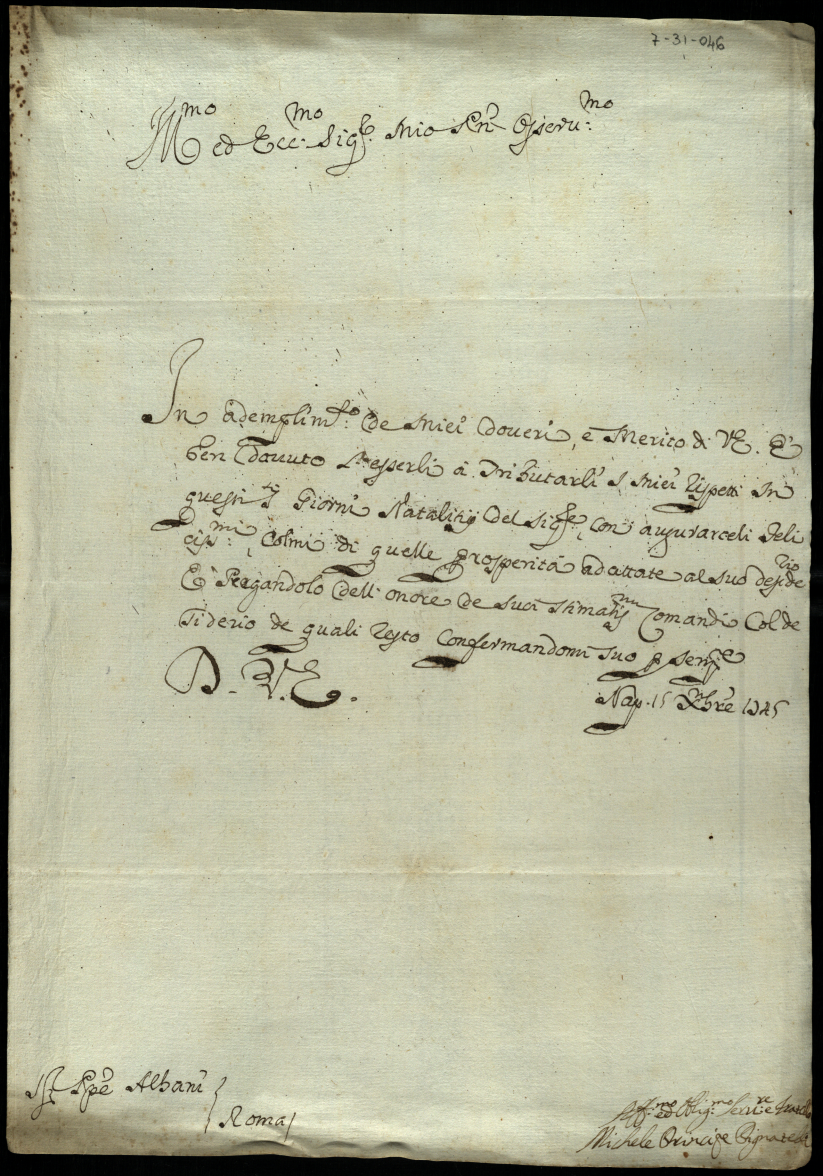 7-31-046
Ill.mo ed Ecc.mo Sig.re Mio P.rn Osseru.mo
In ademplim.to de Miei doueri, e Merito di V.E. è
ben douuto d'esserli à Tributarli i Miei rispetti in
questi Giorni Natalitij del Sig.re, con augurarceli Feli
ciss.mi, Colmi di quelle prosperità adattate al suo deside
rio
E Pregandolo dell'onore de suoi stimatis.mi Comandi Col de
siderio de quali resto Confermandomi suo p semp.e
D. V.E.
Nap. 15 Xbre 1745
Sig. Pñpe Albani
Roma
Aff.mo ed Oblig.mo Seru.re e fratello
Michele Principe Pignatelli